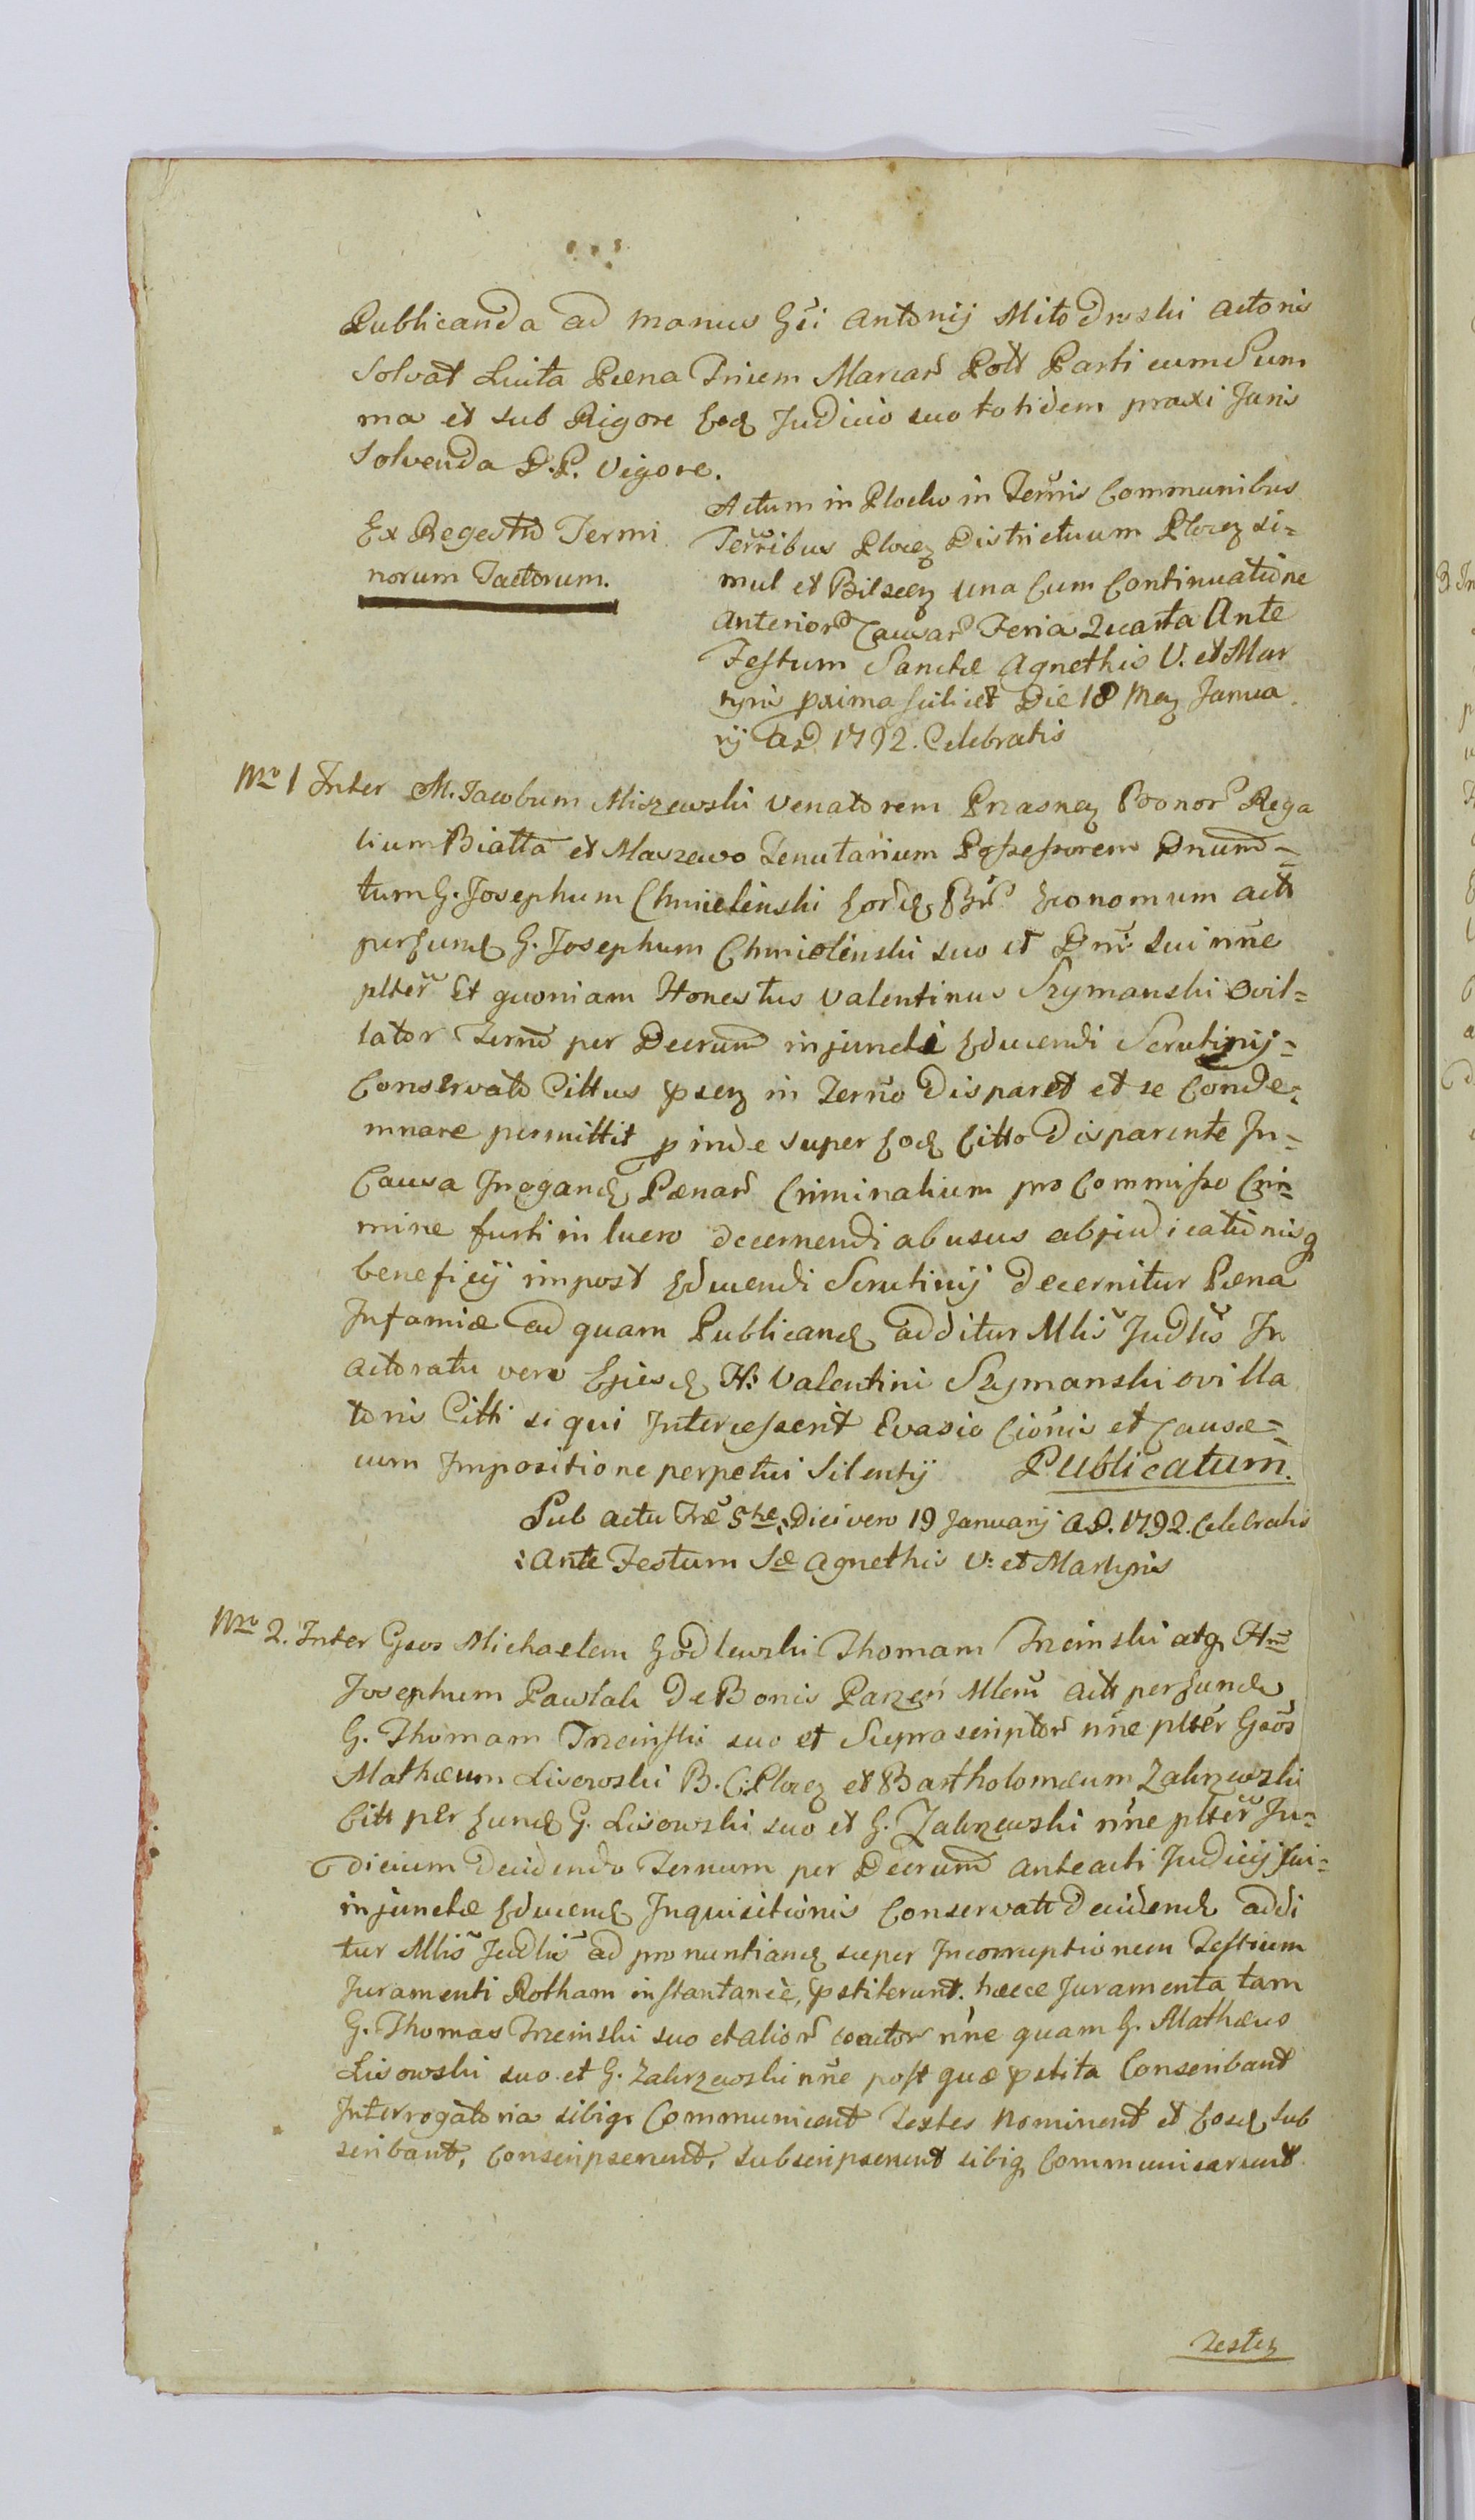 Publicanda ad manus Gsi Antonij Mitodroski Actoris
Solvat Luita Pæna Trium Marcar Polt Parti cum Sum
ma et sub Rigore Eod Judicio suo totidem praxi Juris
Solvenda D.P. Vigore.
Ex Regestro Termi
norum Tactorum.
Actum in Plocko in Termis Communibus
Terribus Plocen Districtuum Plocen si=
mul et Bilscen una Cum Continuatione
Anterior Causar Feria Quarta Ante
Festum Sanctæ Agnethis V. et Mar
tyris prima scilicet Die 18 Men Janua
rij A.D 1792. Celebratis
Nro 1 Inter M. Jacobum Miszewski Venatorem Prasnen Bonor Rega
lium Biatta et Maszewo Tenutarium Possessorem Dnum=
tum G. Josephum Chmielinski Eord Br Economum Acts
per Eund G. Josephum Chmielinski suo et Dni Sui nne
plter Et quoniam Honestus Valentinus Szymanski Ovil=
lator Term per Decrum injuncti Educendi Scrutinij=
Conservato Cittus psen in Termo disparet et se Conde=
mnare permittit pinde super Eod Citto disparente In=
Causa Irrogand Pænar Criminalium pro Commisso Cri=
mine furti in lucro decernendi abusus abjudicationisq
beneficij impost Educendi Scrutinij decernitur Pæna
Infamiæ ad quam Publicand additur Mlis Judlis In
actoratu vero Ejusd H: Valentini Szymanski ovilla
toris Citti si qui Intercesserit Evasio Cionis et Causæ=
cum Impositione perpetui Silentij Publicatum.
Sub actu Træ 5tæ, Diei vero 19 Januarij A.D. 1792. Celebratis
:Ante Festum Sæ Agnethis V: et Martyris
Nro 2. Inter Gsos Michaelem Godlewski Thomam Trzcinski atq Hm
Josephum Pawlak De Bonis Parzeń Mlem Actt per Eund
G. Thomam Trzcinski suo et Suprascriptor nne plter Gsos
Mathæum Lisowski B. C: Plocen et Bartholomæum Zakrzewski
Citt per Eund G. Lisowski suo et G. Zakrzewski nne plter Ju=
dicium decidendo Ternum per Decrum anteacti Judicij sui=
injunctæ Educend Inquisitionis Conservatt decidend addi
tur Mlis Judlis ad pronuntiand super Incorruptionem Testium
Juramenti Rotham instantanee, pstiterunt. hæcce Juramenta tam
G. Thomas Trzcinski suo et alior coactor nne quam G. Mathæus
Lisowski suo et G. Zakrzewski nne post quæ pstita Conscribant
Interrogatoria sibiq Communicent Testes Nominent et Eosd sub
scribant, Conscripserunt, Subscripserunt sibiq Communicarunt.
Testes